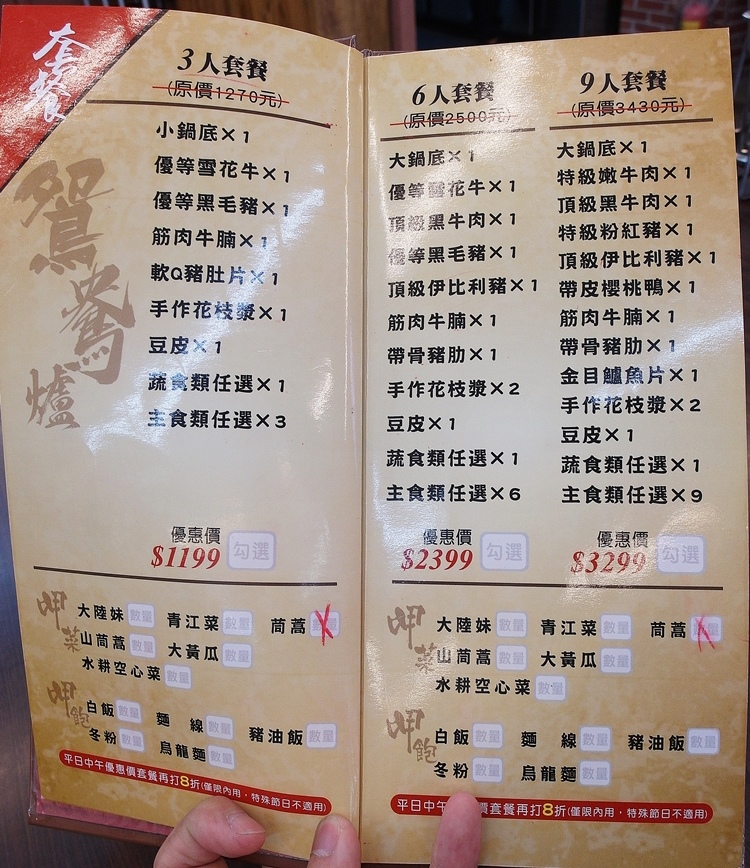 套餐
鴛鴦爐
3人套餐
(原價1270元)
小鍋底×1
優等雪花牛×1
優等黑毛豬×1
筋肉牛腩×1
軟Q豬肚片×1
手作花枝漿×1
豆皮×1
蔬食類任選×1
主食類任選×3
優惠價
$1199 勾選
呷菜
大陸妹 數量 青江菜 數量 茼蒿 數量
山茼蒿 數量 大黃瓜 數量
水耕空心菜 數量
呷飽
白飯 數量 麵線 數量 豬油飯 數量
冬粉 數量 烏龍麵 數量
平日中午優惠價套餐再打8折(僅限內用,特殊節日不適用)
6人套餐
(原價2500元)
大鍋底×1
優等雪花牛×1
頂級黑牛肉×1
優等黑毛豬×1
頂級伊比利豬×1
筋肉牛腩×1
帶骨豬肋×1
手作花枝漿×2
豆皮×1
蔬食類任選×1
主食類任選×6
優惠價
$2399 勾選
9人套餐
(原價3430元)
大鍋底×1
特級嫩牛肉×1
頂級黑牛肉×1
特級粉紅豬×1
頂級伊比利豬×1
帶皮櫻桃鴨×1
筋肉牛腩×1
帶骨豬肋×1
金目鱸魚片×1
手作花枝漿×2
豆皮×1
蔬食類任選×1
主食類任選×9
優惠價
$3299 勾選
呷菜
大陸妹 數量 青江菜 數量 茼蒿 數量
山茼蒿 數量 大黃瓜 數量
水耕空心菜 數量
呷飽
白飯 數量 麵線 數量 豬油飯 數量
冬粉 數量 烏龍麵 數量
平日中午 價套餐再打8折(僅限內用,特殊節日不適用)